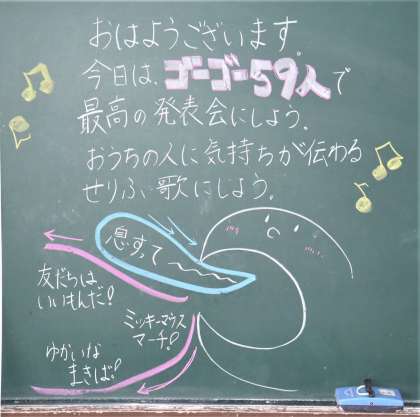 おはようございます。
今日は、ゴーゴー59人で
最高の発表会にしよう。
おうちの人に気持ちが伝わる
せりふ、歌にしよう。
息すって
友だちは
いいもんだ!
ミッキーマウス
マーチ!
ゆかいな
まきば!